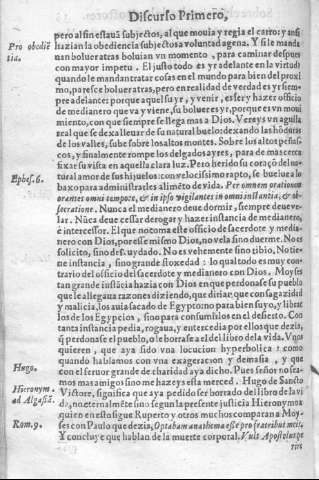 Discurso Primero,
pero al fin estauã subjectos, al que mouia y regia el carro: y ansi
Pro obediẽtia.
hazian la obediencia subjectos a voluntad agena. Y si le mandauan
bolueratras boluian vn momento, para caminar despues
con mayor impetu. El justo todo es yr adelante en la virtud:
quando le mandan tratar cosas en el mundo para bien del proximo,
paresce bolueratras, pero en realidad de verdad es yr siempre
adelante: porque aquel su yr, y venir, es fer y hazer officio
de medianero que va y viene, su boluer es yr, porque es vn mouimiento,
con que siempre se llega mas a Dios. Vereys vn aguila
real que se dexa lleuar de su natural buelo: dexando las hõduras
de los valles, sube sobre los altos montes. Sobre los altos peñascos,
y finalmente rompe los delgados ayres, para de mas cerca
fixar su vista en aquella clara luz. Pero herido su coraçõ del natural
Ephes. 6.
amor de sus hijuelos: con velocissimo rapto, se buelue a lo
baxo para administrarles alimẽto de vida. Per omnem orationem
orantes omni tempore, & in ipso vigilantes in omni instantia, & obsecratione.
Nunca el medianero deue dormir, siempre deue velar.
Nũca deue cessar de rogar y hazer instancia de medianero,
è intercessor. El que no toma este officio de sacerdote y medianero
con Dios, por esse mismo Dios, no vela sino duerme. No es
solicito, sino descuydado. No es vehemente sino tibio. No tiene
instancia, sino grande floxedad: lo qual todo es muy contrario
del officio del sacerdote y medianero con Dios. Moyses
tan grande instãcia hazia con Dios en que perdonasse su pueblo
que le allegaua razones diziendo, que dirian, que con sagazidad
y malicia, los auia sacado de Egypto no para bien suyo, y librarlos
de los Egypcios, sino para consumirlos en el desierto. Con
tanta instancia pedia, rogaua, y intercedia por ellos que dezia,
q̃ perdonasse el pueblo, o le borrasse a el del libro de la vida. Vnos
quieren, que aya sido vna locucion hyperbolica: como
quando hablamos con vna exageracion y demasia, y que
Hugo.
con el feruor grande de charidad aya dicho. Pues señor no seamos
mas amigos sino me hazeys esta merced. Hugo de Sancto
Hieronym. ad Algasiã.
Victore, significa que aya pedido ser borrado del libro de la vida,
no eternalmẽte sino segun la presente justicia Hieronymo a
Rom. 9.
quien en esto sigue Ruperto y otros muchos comparan a Moyses
con Paulo que dezia, Optabam anathema esse pro fratribus meis.
Y concluye que hablan de la muerte corporal. Vult Apostolus pe